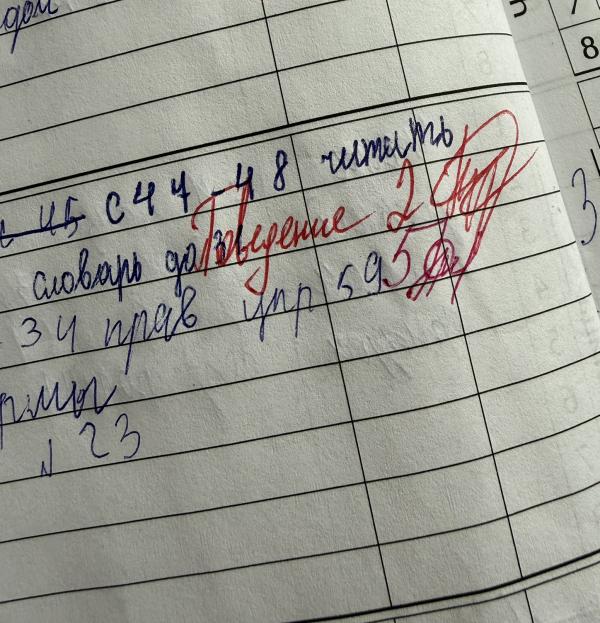 дом
8
с 45 с 44-48 читать
словарь до Поведение 2
34 прав упр 595
рмы
N 23
3